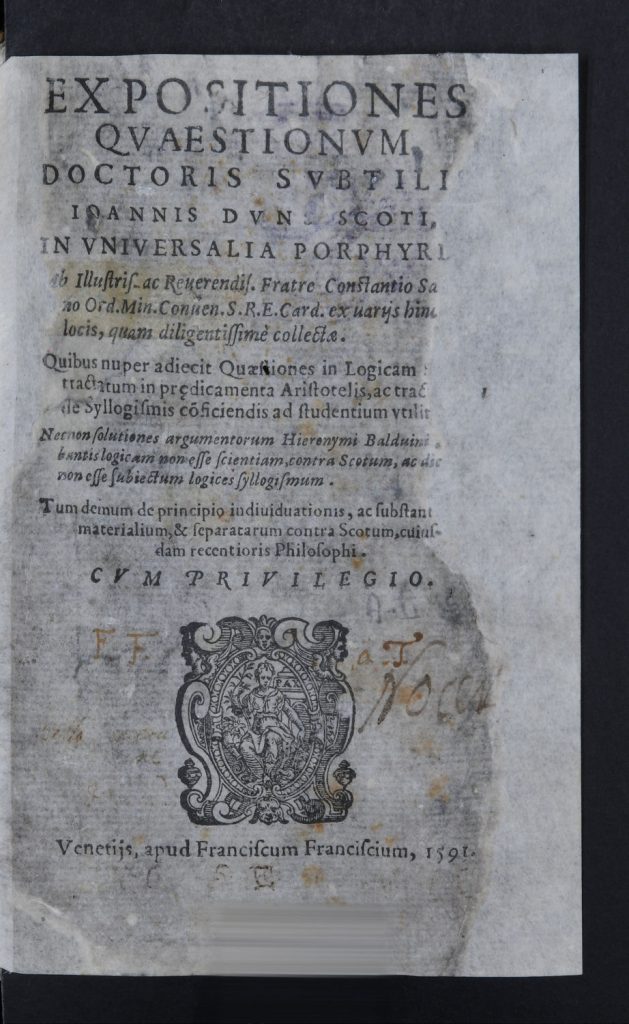 EXPOSITIONES
QVAESTIONVM
DOCTORIS SVBTILI
IOANNIS DVNS SCOTI,
IN VNIVERSALIA PORPHYRI
ab Illustriſ. ac Reuerendiſ. Fratre Constantio Sa
no Ord. Min. Conuen. S. R. E. Card. ex uarijs hinc
locis, quam diligentiſſimè collectæ.
Quibus nuper adiecit Quæſtiones in Logicam
tractatum in prędicamenta Ariſtotelis, ac trac
de Syllogiſmis cõficiendis ad ſtudentium vtilit
Necnon ſolutiones argumentorum Hieronymi Balduini
bantis logicam non eſſe ſcientiam, contra Scotum, ac dic
non eſſe ſubiectum logices ſyllogiſmum.
Tum demum de principio indiuiduationis, ac ſubſtant
materialium, & ſeparatarum contra Scotum, cuiuſ-
dam recentioris Philoſophi.
CVM PRIVILEGIO.
F. F. a. T.
PAX
Venetijs, apud Franciſcum Franciſcium, 1591.
S E